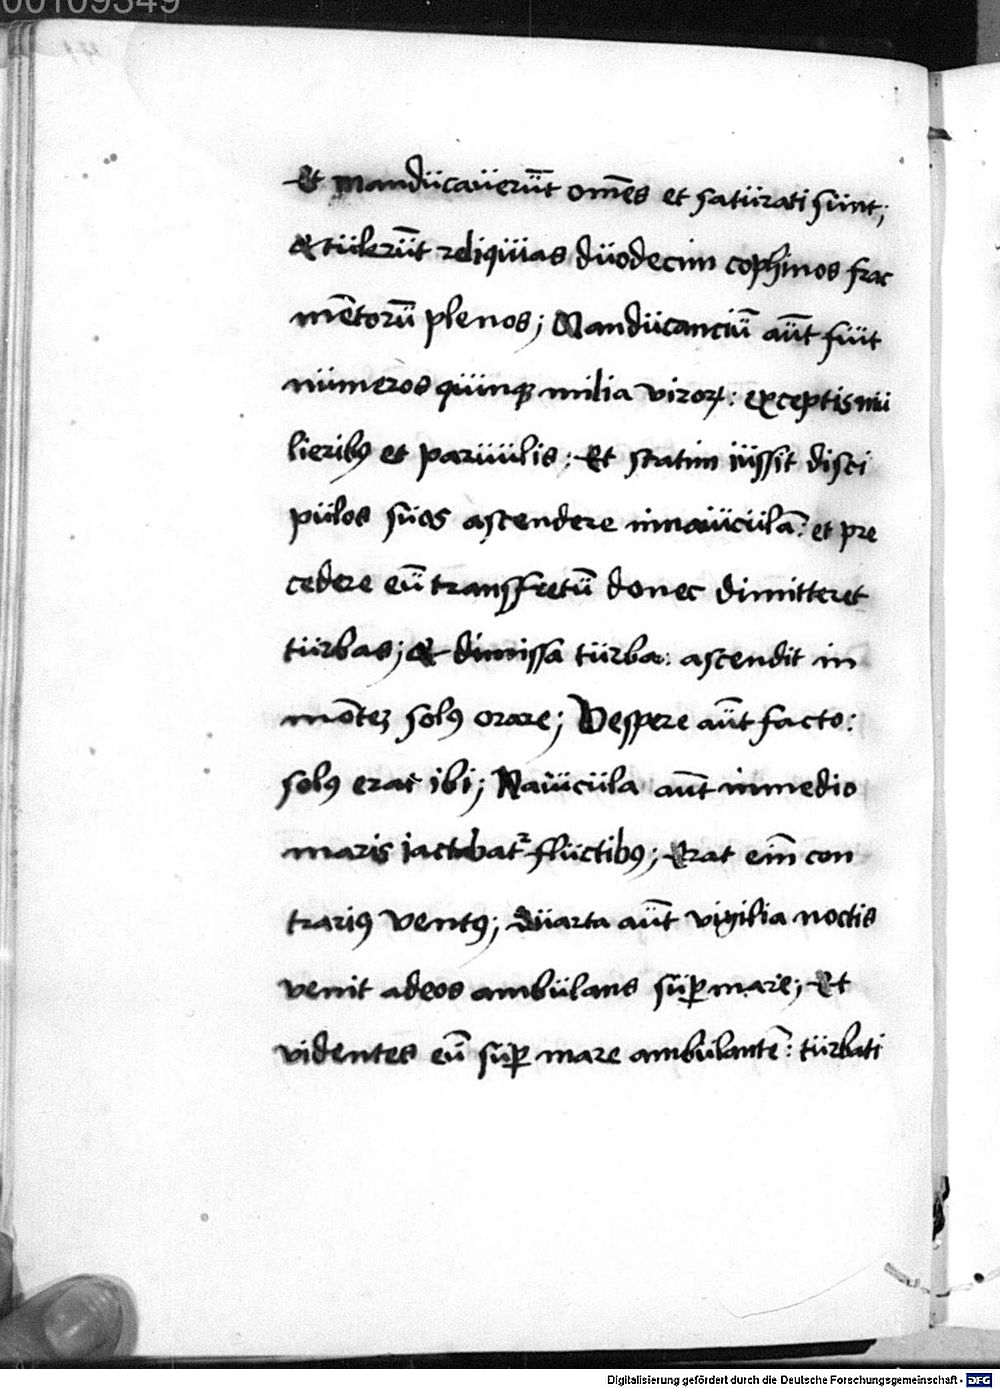 00109349
Et mandücaüerũt om̃es et satürati sünt;
& tülerũt reliqüias düodecim cophinos frac
mẽtorũ plenos; Mandücanciũ aũt füit
nümeros qüinqꝫ milia viroꝝ: exceptis mü
lieribꝰ et parüülis: Et statim iüssit disci
pülos süos ascendere innaüicülã: et pre
cedere eũ transfretũ donec dimitteret
türbas; & dimissa türba: ascendit in
mõteꝫ solꝰ orare; Vespere aũt facto:
solꝰ erat ibi; Naüicüla aũt inmedio
maris iactabatᷣ flüctibꝰ; Erat eim̃ con
trariꝰ ventꝰ; Qüarta aũt vigilia noctis
venit adeos ambülans süꝑ mare; Et
videntes eũ süꝑ mare ambülantẽ: türbati
Digitalisierung gefördert durch die Deutsche Forschungsgemeinschaft - DFG